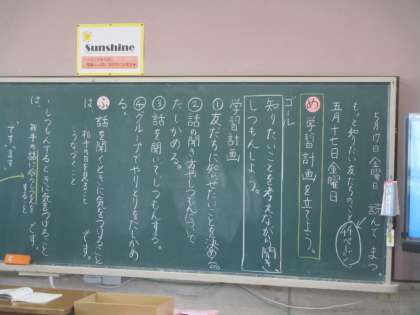 Sunshine
5月17日 金曜日 読んでまつ
もっと知りたい、友だちのこと
五月十七日 金曜日
め 学習計画を立てよう。
ゴール
知りたいことを考えながら聞き、
しつもんしよう。
学習計画
①友だちに知らせたいことを決める。
②話の聞き方やしつもんについて
たしかめる。
③話を聞いてしつもんする。
④グループでやりとりをたしかめ
る。
ふ 話を聞くときに気をつけること
は、
相手の目を見ること
うなづくこと
です。
しつもんするときに気をつけること
は、
です。
です、ます